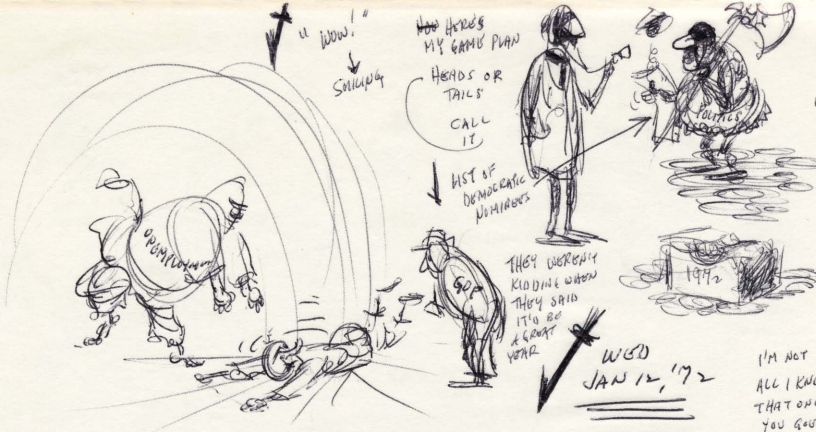 "WOW!"
SMILING
HERE'S
MY GAME PLAN
HEADS OR
TAILS
CALL
IT
LIST OF
DEMOCRATIC
NOMINEES
POLITICS
UNEMPLOYMENT
GOP
THEY WEREN'T
KIDDING WHEN
THEY SAID
IT'D BE
A GREAT
YEAR
1972
WED
JAN 12, '72
I'M NOT
ALL I KNO
THAT ON
YOU GO